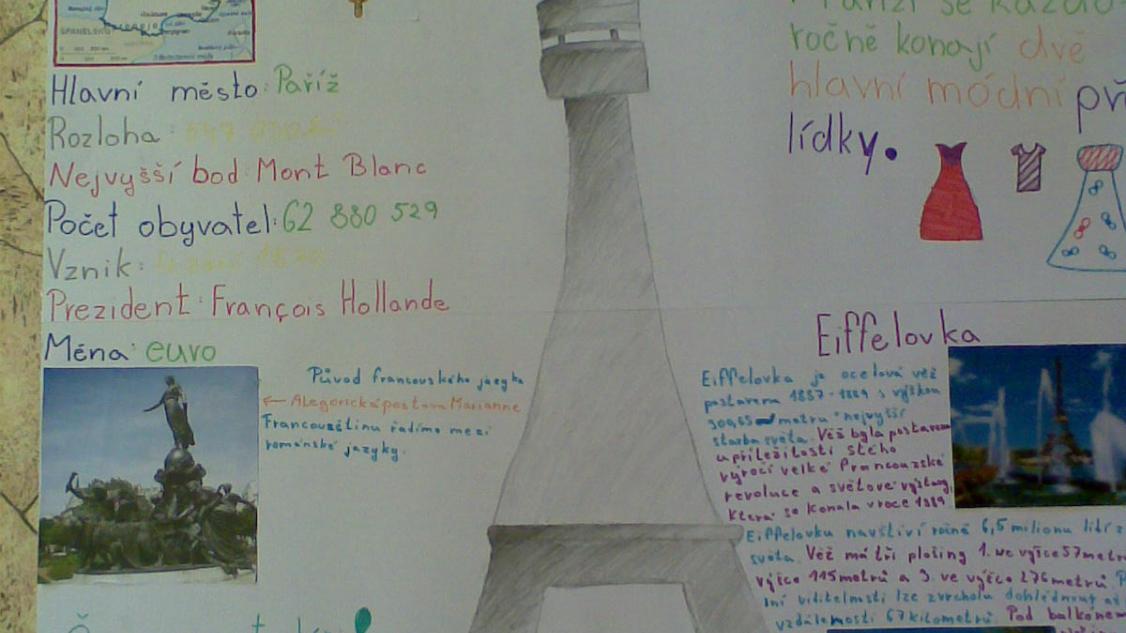 ŠPANĚLSKO
Hlavní město: Paříž
Rozloha:
Nejvyšší bod Mont Blanc
Počet obyvatel: 62 880 529
Vznik:
Prezident: François Hollande
Měna: euro
Původ francouského jazyka
← Alegorická postava Marianne
Francouzštinu řadíme mezi
románské jazyky.
se každo-
ročně konají dvě
hlavní módní př
lídky.
Eiffelovka
Eiffelovka je ocelová věž
postavena 1887-1889 s výškou
metru nejvyšší
stavba světa. Věž byla postavena
u příležitosti stého
výročí velké Francouzské
revoluce a světové výstavy,
která se konala v roce 1889
Eiffelovku navštíví ročně 6,5 milionu lidí z
světa. Věž má tři plošiny 1. ve výšce 57 metr
výšce 115 metrů a 3. ve výšce 276 metrů.
ní viditelnosti lze z vrcholu dohlédnout až
vzdálenosti 67 kilometrů. Pod balkónem